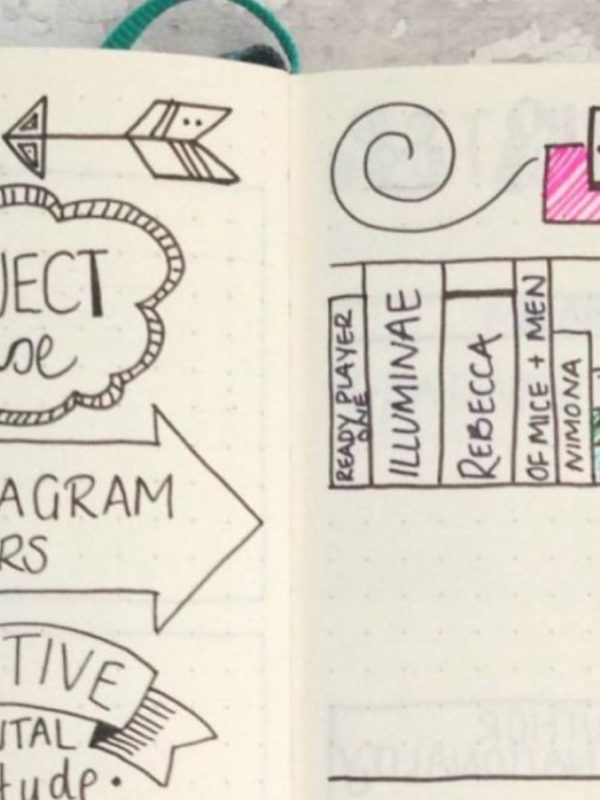 JECT
se
AGRAM
RS
TIVE
NTAL
tude.
READY PLAYER
ONE
ILLUMINAE
REBECCA
OF MICE + MEN
NIMONA